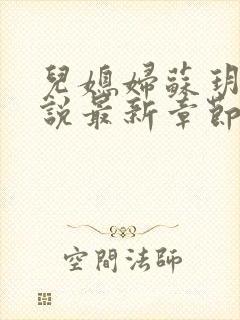 兒媳婦蘇玥
說最新章節
空間法師